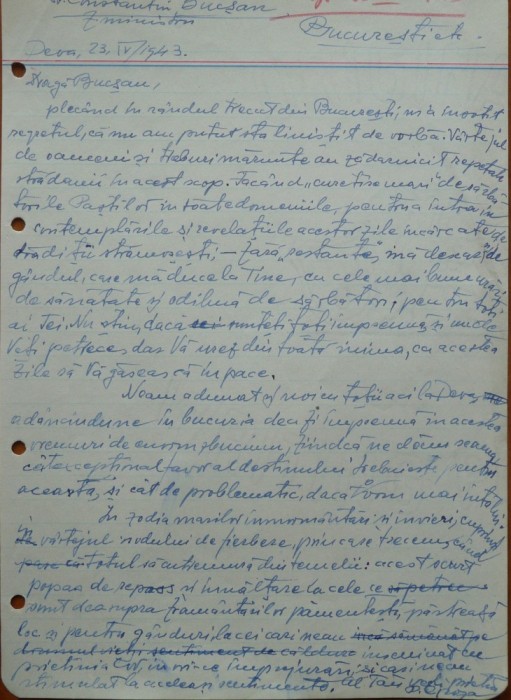 Constantin Bursan
Ministru
București
Deva, 23. IV/1943.
Dragă Bursan,
plecând în rândul trecut din București, m'a însoțit
regretul, că nu am putut sta liniștit de vorbă. Vârtejul
de oameni și treburi mărunte au zădarnicit repetate
strădanii în acest scop. Făcând „curețire mare" de sărbă-
torile Paștilor în toate domeniile, pentru a intra în
contemplările și revelațiile acestor zile încărcate de
tradiții strămoșești, — fără „restanțe", mă descarc de
gândul, care mă duce la Tine, cu cele mai bune urări
de sănătate și odihnă de sărbători, pentru toți
ai Tei. Nu știu, dacă sunteți toți împreună și unde
Veți petrece, dar Vă urez din toată inima, ca acestea
zile să Vă găsească în pace.
Ne-am adunat și noi cu toții aci la Deva,
adâncindu-ne în bucuria de a fi împreună în acestea
vremuri de enorm sbucium, fiindcă ne dăm seama
cât excepțional favor al destinului trebuiește pentru
aceasta, și cât de problematic, dacă vom mai întâlni!
In zodia marilor înmormântări și învieri, cuprinși
în vârtejul nodului de fierbere, prin care trecem, când
totul să cutremură din temelii: acest scurt
popas de și înălțare la cele ce
sunt deasupra frământărilor pământești, păstrează
loc și pentru gânduri la cei cari ne-au
drumul vieții sentiment de căldură înseninat cu
prietenia lor în orice împrejurări, și cari ne-au
stimulat la aceleași sentimente. Al Tău